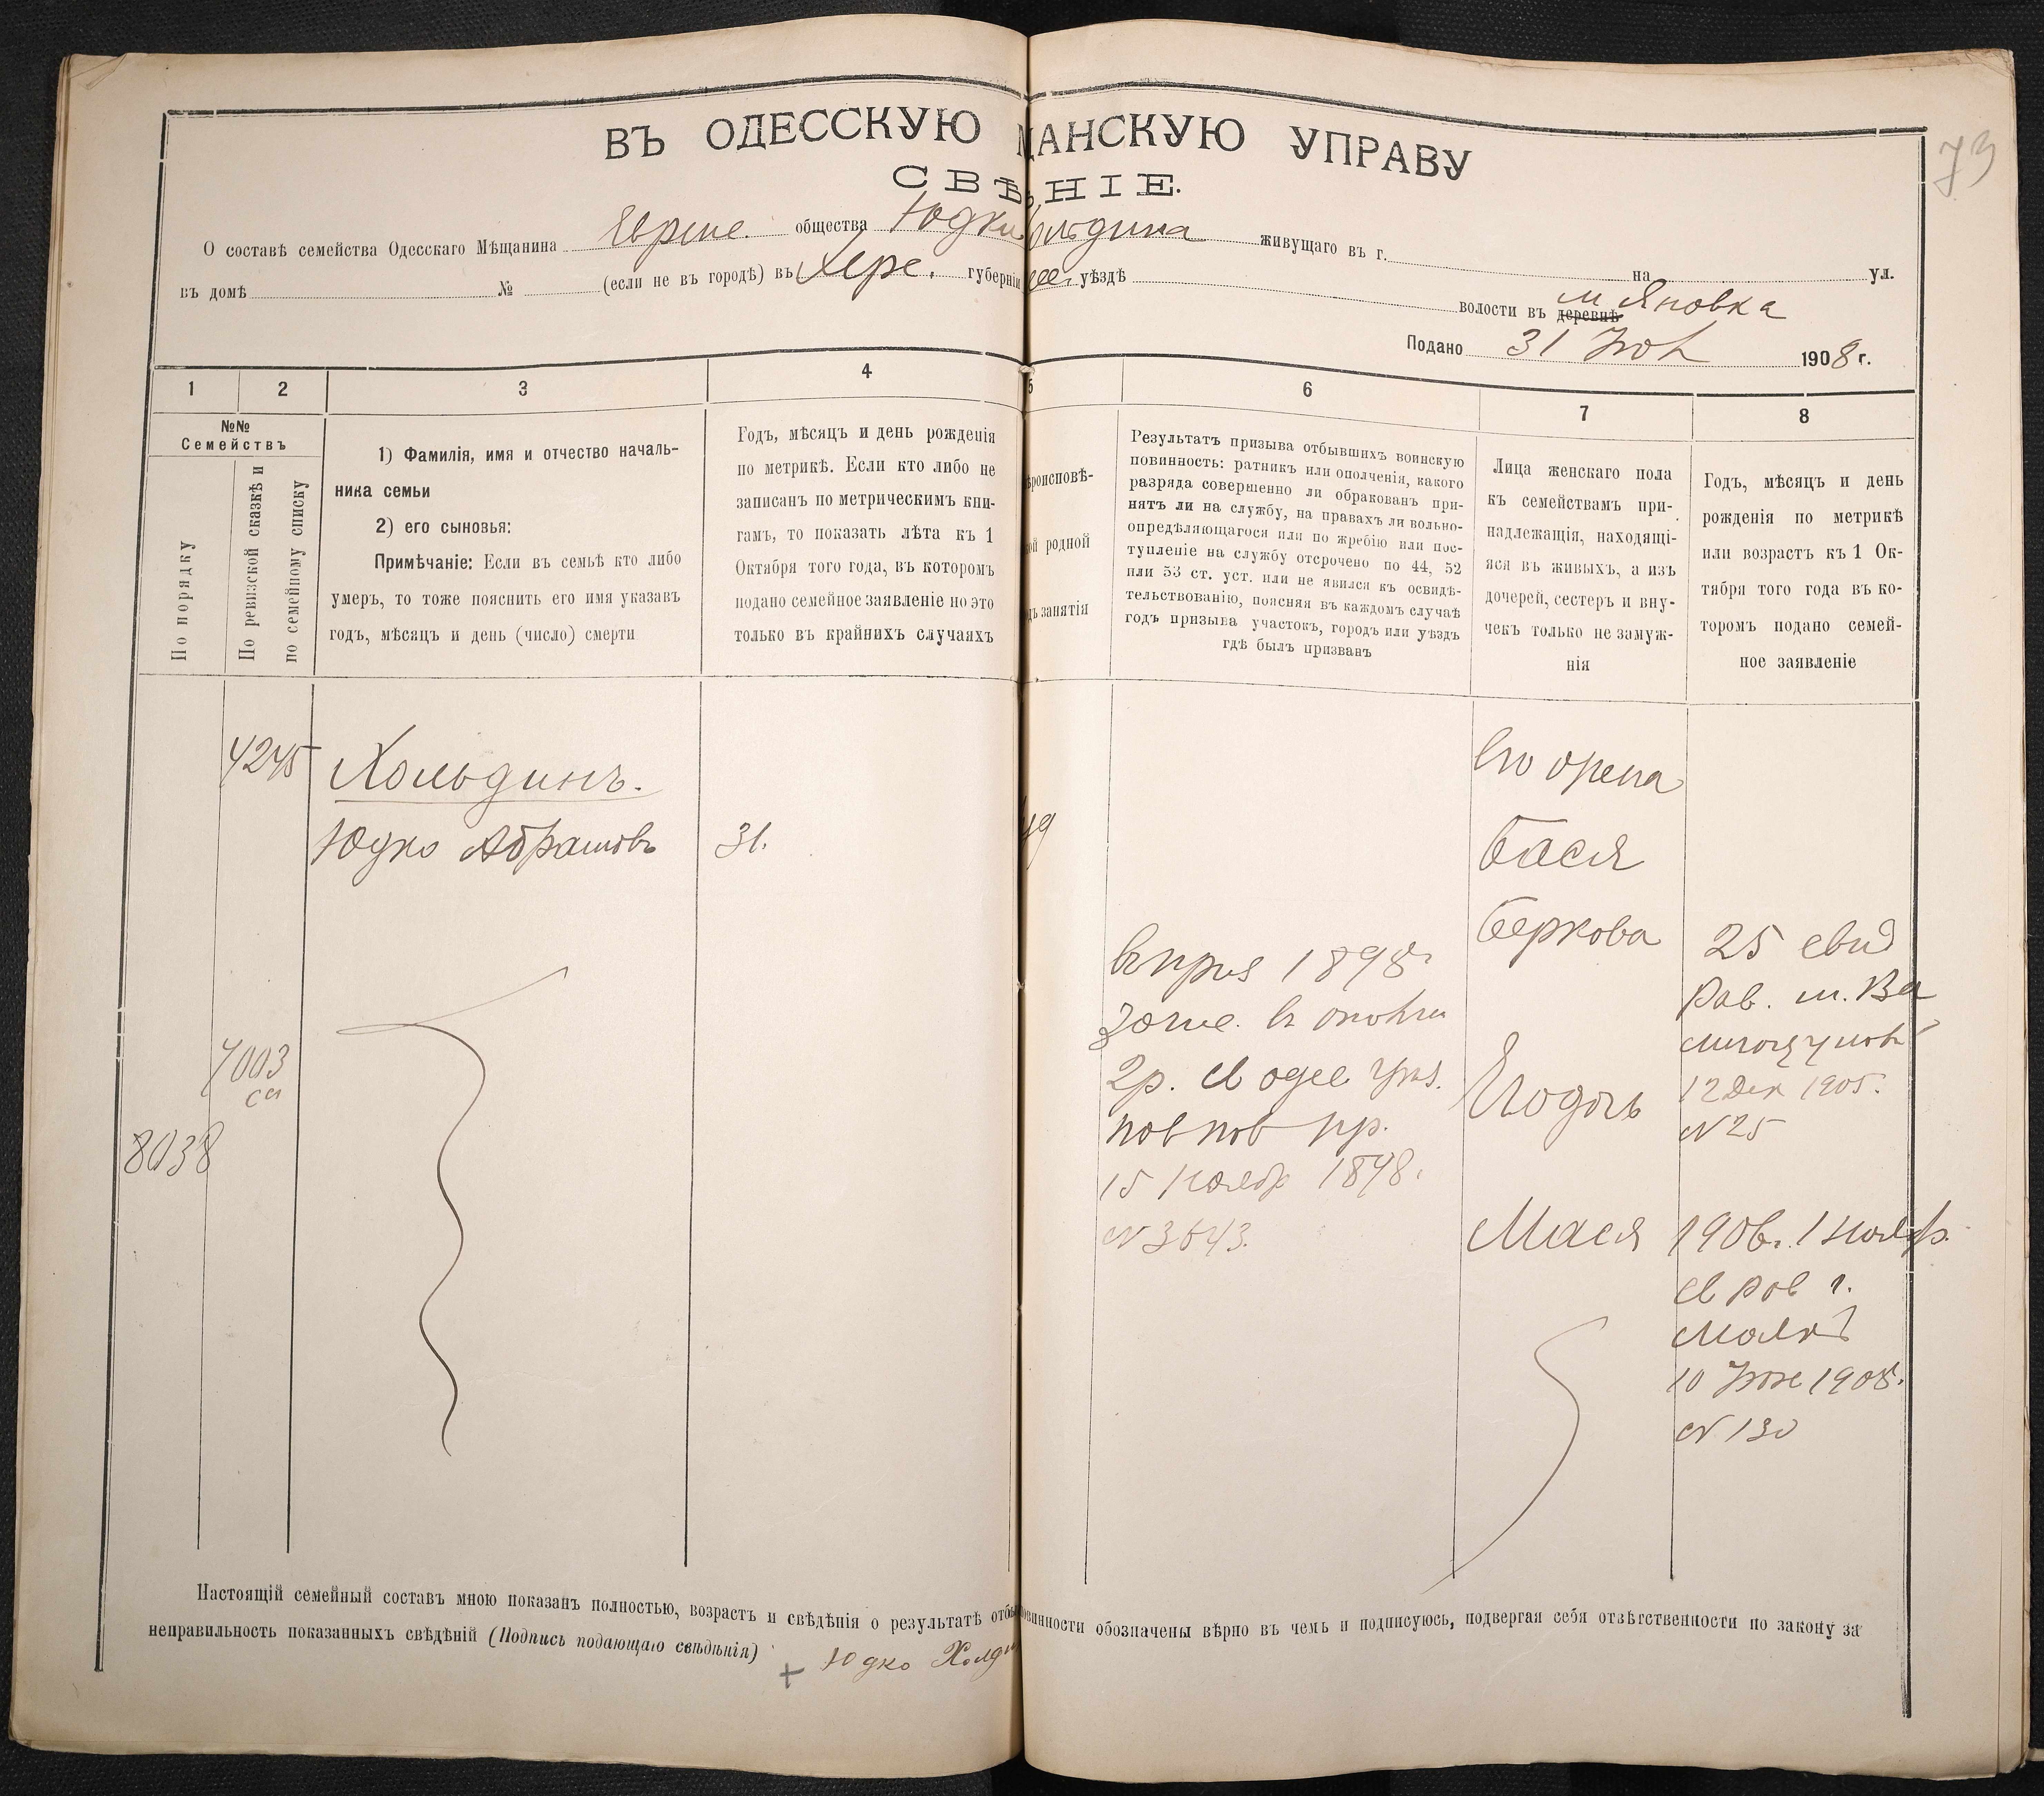 ВЪ ОДЕССКУЮ ЩАНСКУЮ УПРАВУ
73
СВѢНІЕ.
О составѣ семейства Одесскаго Мѣщанина Еврейс. общества Юдки ольдина живущаго въ г. на ул.
въ домѣ № (если не въ городѣ) въ Херс. губерніи уѣздѣ
волости въ деревнѣ м Яновка
Подано 31 1908 г.
1 2 3 4 5 6 7 8
№№
Семействъ
По порядку
По ревизской сказкѣ и
по семейному списку
1) Фамилія, имя и отчество началь-
ника семьи
2) его сыновья:
Примѣчаніе: Если въ семьѣ кто либо
умеръ, то тоже пояснить его имя указавъ
годъ, мѣсяцъ и день (число) смерти
Годъ, мѣсяцъ и день рожденія
по метрикѣ. Если кто либо не
записанъ по метрическимъ кни-
гамъ, то показать лѣта къ 1
Октября того года, въ которомъ
подано семейное заявленіе но это
только въ крайнихъ случаяхъ
роисповѣ-
ой родной
занятія
Результатъ призыва отбывшихъ воинскую
повинность: ратникъ или ополченія, какого
разряда совершенно ли обракованъ при-
нятъ ли на службу, на правахъ ли вольно-
опредѣляющагося или по жребію или пос-
тупленіе на службу отсрочено по 44, 52
или 53 ст. уст. или не явился къ освидѣ-
тельствованію, поясняя въ каждомъ случаѣ
годъ призыва участокъ, городъ или уѣздъ
гдѣ былъ призванъ
Лица женскаго пола
къ семействамъ при-
надлежащія, находящі-
яся въ живыхъ, а изъ
дочерей, сестеръ и вну-
чекъ только не замуж-
нія
Годъ, мѣсяцъ и день
рожденія по метрикѣ
или возрастъ къ 1 Ок-
тября того года въ ко-
торомъ подано семей-
ное заявленіе
4245
Хольдинъ.
Юдко Абрамовъ 31.
7003
сп
8038
1898г
2р. св одес
15 Ноябр 1898.
N 3643.
Его
Бася
Беркова
Его дочь
Мася
25 свид
Рав. м.
12 Дек 1905.
N 25
1906г. 1 Ноябр.
св рав
10 1908.
N 130
Настоящій семейный составъ мною показанъ полностью, возрастъ и свѣдѣнія о результатѣ отбы овинности обозначены вѣрно въ чемъ и подписуюсь, подвергая себя отвѣтственности по закону за
неправильность показанныхъ свѣдѣній (Подпись подающаго свѣдѣнія) + Юдко Холд